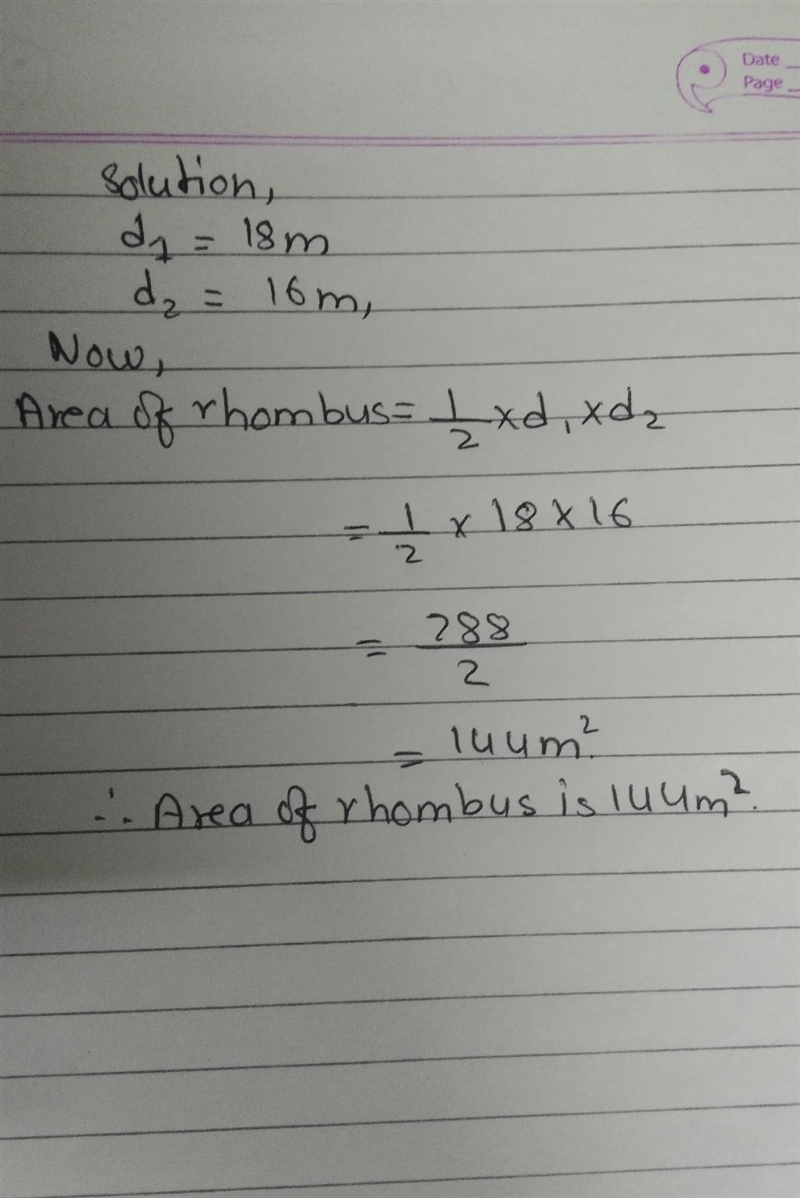 Date
Page
Solution,
d₁ = 18m
d₂ = 16m,
Now,
Area of rhombus = 1/2 × d₁ × d₂
= 1/2 × 18 × 16
= 288/2
= 144m².
∴ Area of rhombus is 144m².